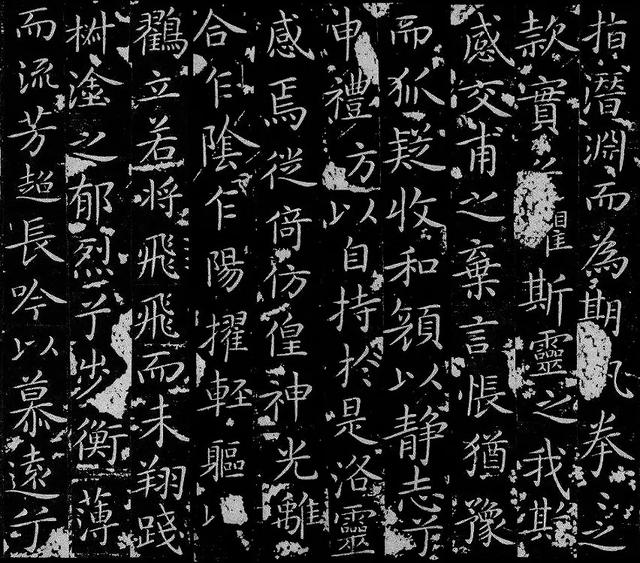 指潛淵而為期拳〻之
款實懼斯靈之我欺
感交甫之棄言悵猶豫
而狐疑收和顏以静志兮
申禮方以自持於是洛靈
感焉徙倚彷徨神光離
合乍陰乍陽擢輕軀以
鸖立若將飛飛而未翔踐
椒塗之郁烈兮步衡薄
而流芳超長吟以慕遠兮